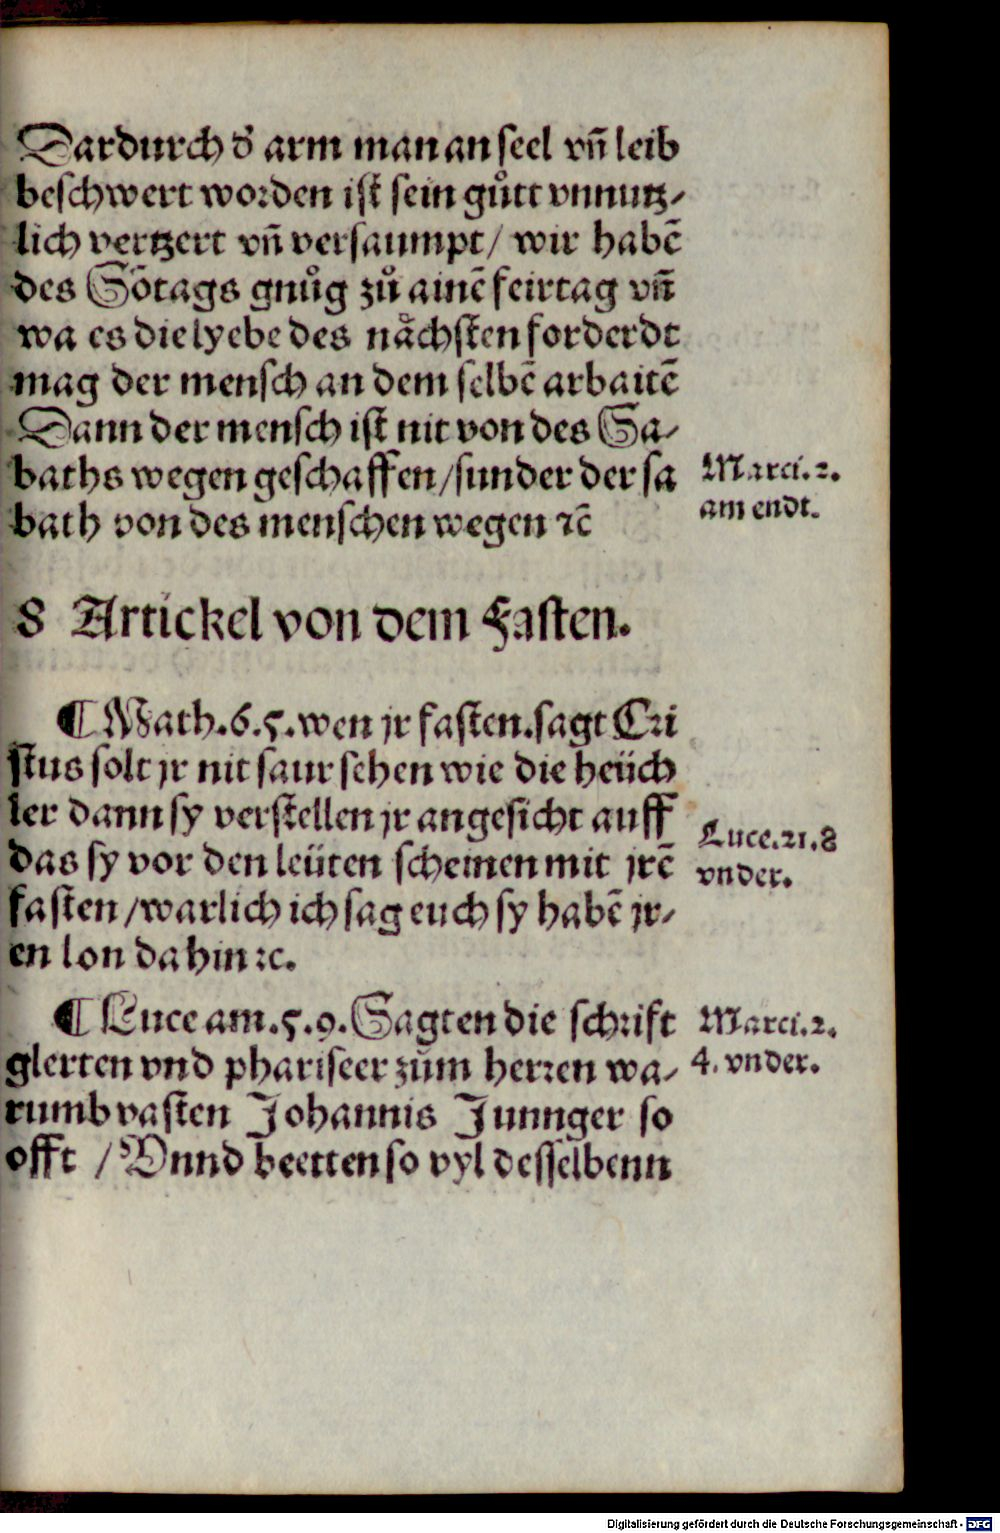 Dardurch d̕ arm man an seel vn̄ leib
beschwert worden ist sein gůtt vnnutz⸗
lich vertzert vn̄ versaumpt/ wir habē
des Sōtags gnůg zů ainē feirtag vn̄
wa es die lyebe des nåchsten forderdt
mag der mensch an dem selbē arbaitē
Dann der mensch ist nit von des Sa⸗
baths wegen geschaffen/sunder der sa
bath von des menschen wegen ꝛc̄
Marci.2.
am endt.
8 Artickel von dem Fasten.
¶ Math.6.5.wen jr fasten.sagt Cri
stus solt jr nit saur sehen wie die heüch
ler dann sy verstellen jr angesicht auff
das sy vor den leüten scheinen mit jrē
fasten/warlich ich sag euch sy habē jr⸗
en lon da hin ꝛc.
Luce.21.8
vnder.
¶ Luce am.5.9.Sagten die schrift
glerten vnd phariseer zům herren wa⸗
rumb vasten Johannis Junnger so
offt /Vnnd beetten so vyl desselbenn
Marci.2.
4. vnder.
Digitalisierung gefördert durch die Deutsche Forschungsgemeinschaft - DFG